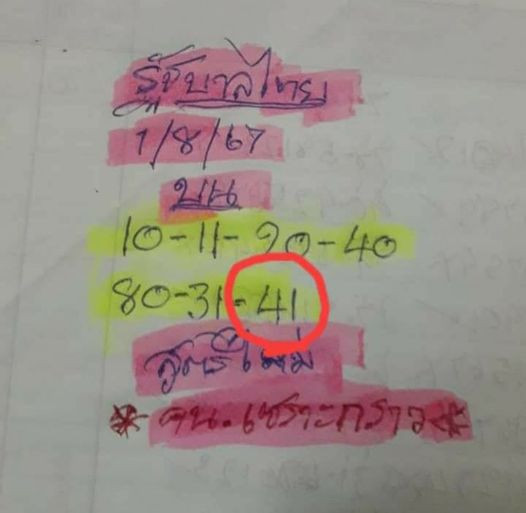 รัฐบาลไทย
1/8/67
บน
10-11-90-40
80-31-41
สูตรใหม่
* จน.เซราะกราว *